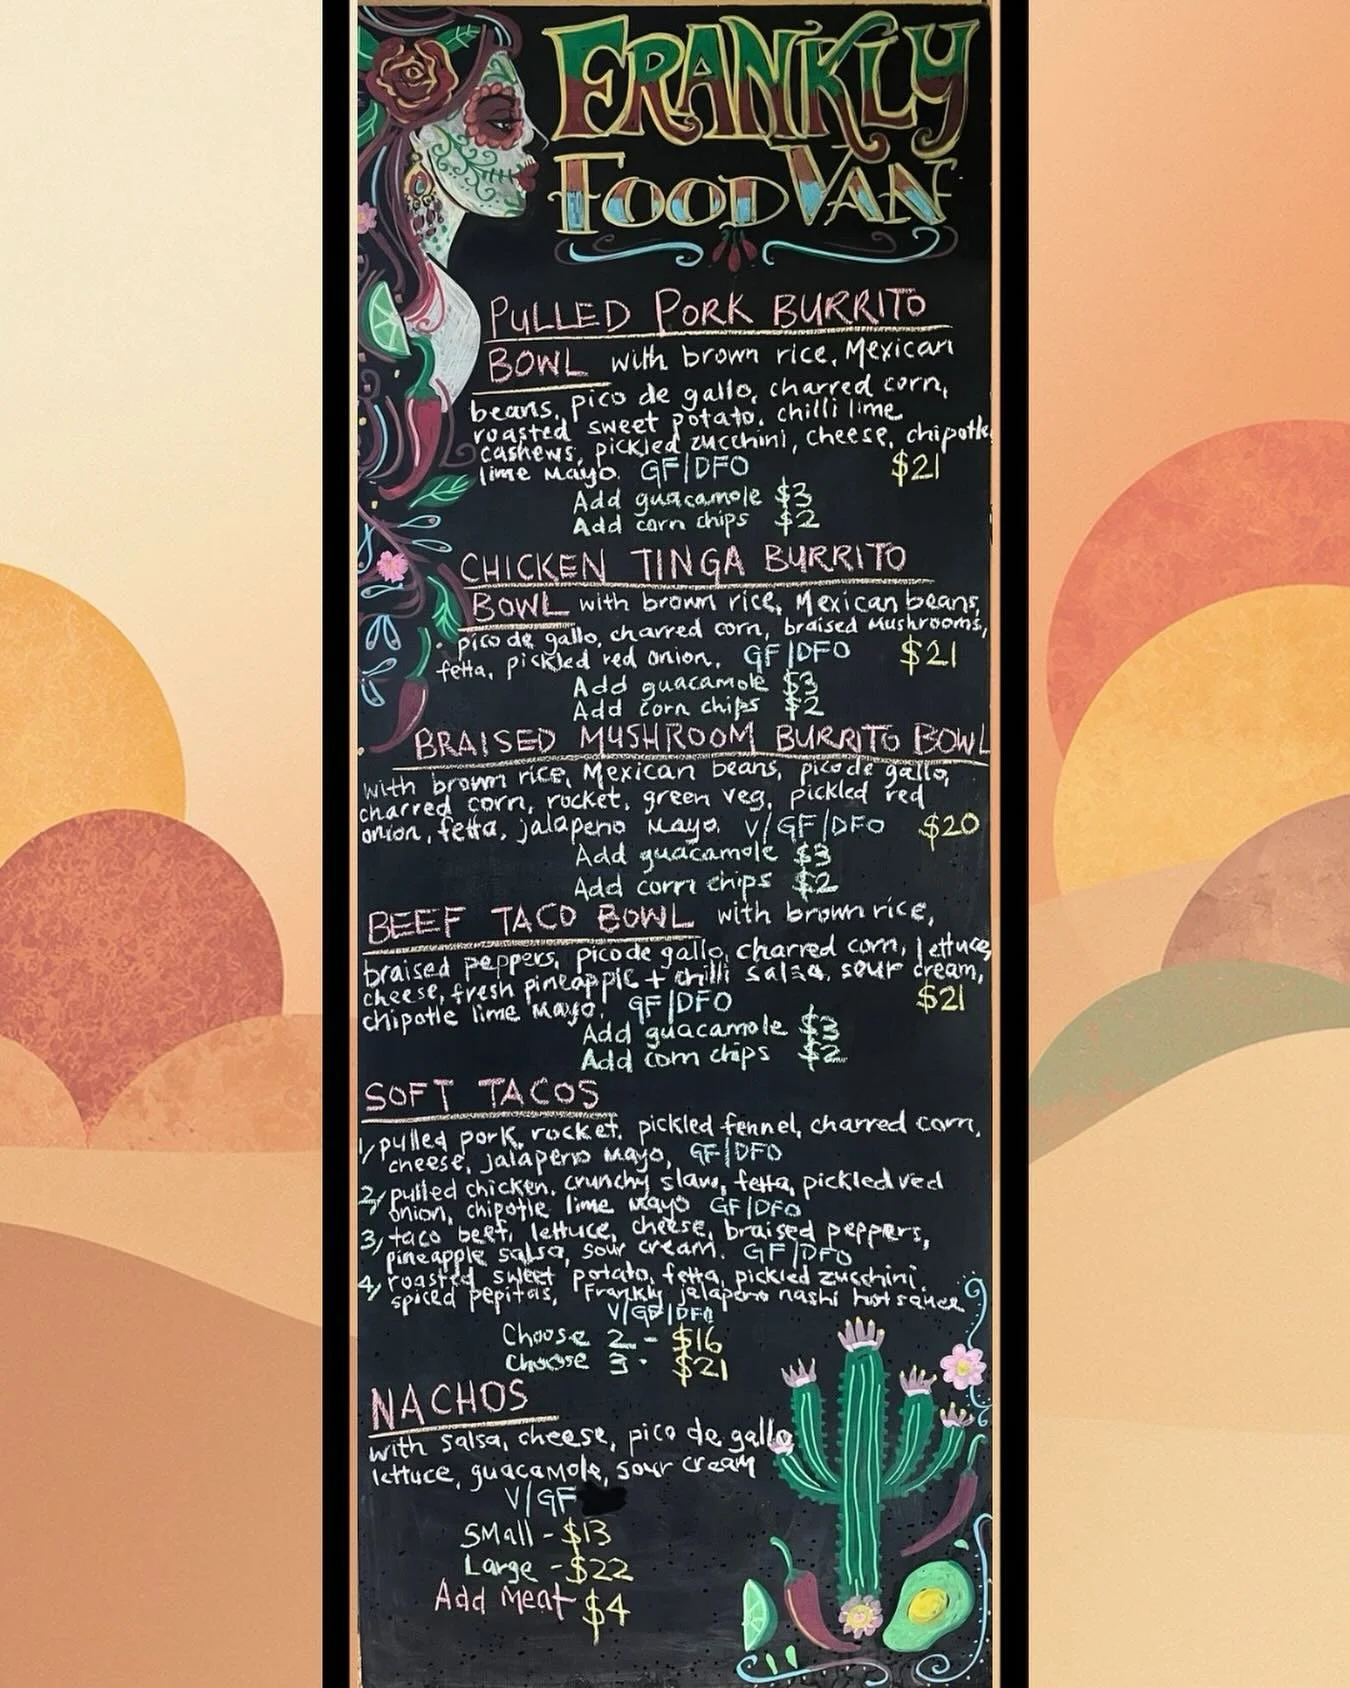 FRANKLY
FOOD VAN
PULLED PORK BURRITO
BOWL with brown rice, Mexican
beans, pico de gallo, charred corn,
roasted sweet potato, chilli lime
cashews, pickled zucchini, cheese, chipotle
lime Mayo. GF/DFO $21
Add guacamole $3
Add corn chips $2
CHICKEN TINGA BURRITO
BOWL with brown rice, Mexican beans,
pico de gallo, charred corn, braised Mushrooms,
fetta, pickled red onion. GF/DFO $21
Add guacamole $3
Add corn chips $2
BRAISED MUSHROOM BURRITO BOWL
with brown rice, Mexican beans, pico de gallo,
charred corn, rocket, green veg, pickled red
onion, fetta, jalapeno Mayo. V/GF/DFO $20
Add guacamole $3
Add corn chips $2
BEEF TACO BOWL with brown rice,
braised peppers, pico de gallo, charred corn, lettuce,
cheese, fresh pineapple + chilli salsa, sour cream,
chipotle lime Mayo. GF/DFO $21
Add guacamole $3
Add corn chips $2
SOFT TACOS
1, pulled pork, rocket, pickled fennel, charred corn,
cheese, jalapeno Mayo, GF/DFO
2, pulled chicken, crunchy slaw, fetta, pickled red
onion, chipotle lime Mayo GF/DFO
3, taco beef, lettuce, cheese, braised peppers,
pineapple salsa, sour cream. GF/DFO
4, roasted sweet potato, fetta, pickled zucchini,
spiced pepitas, Frankly jalapeno nashi hot sauce
V/GF/DFO
Choose 2 - $16
Choose 3 - $21
NACHOS
with salsa, cheese, pico de gallo
lettuce, guacamole, sour cream
V/GF
Small - $13
Large - $22
Add Meat $4